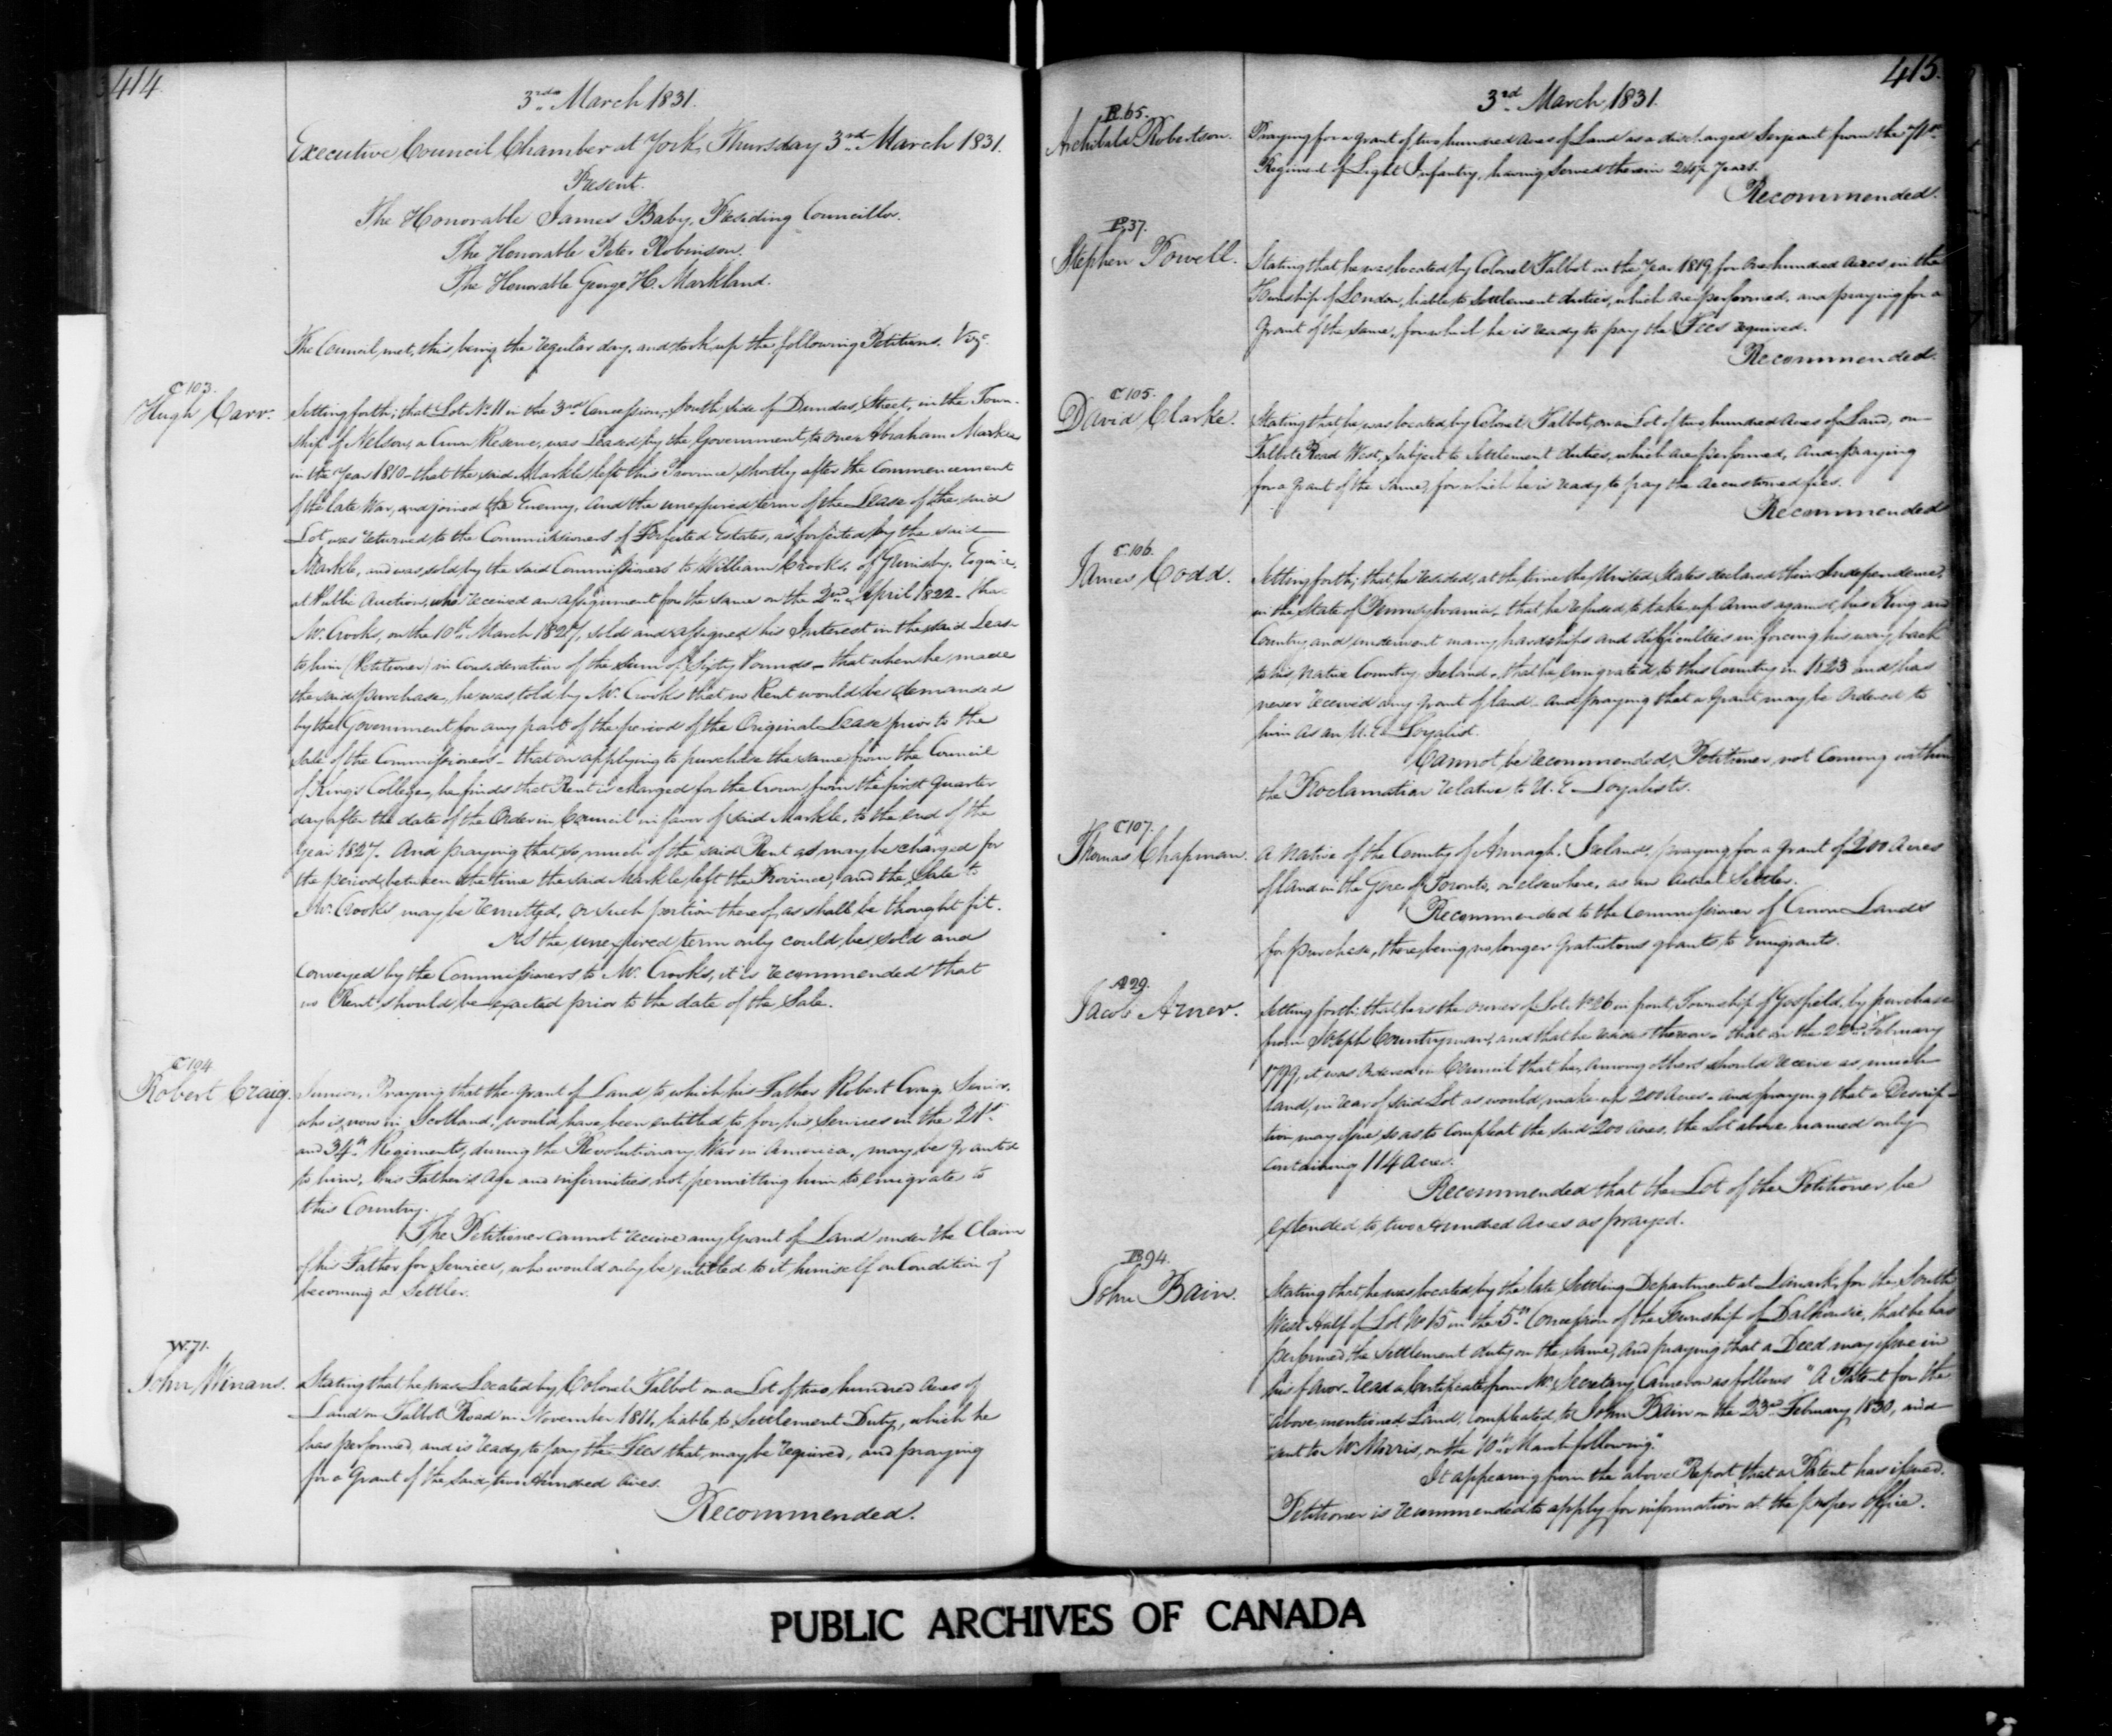 414
3rd March 1831.
Executive Council Chamber at York, Thursday 3rd March 1831.
Present.
The Honorable James Baby, Presiding Councillor.
The Honorable Peter Robinson.
The Honorable George H. Markland.
The Council met, this being the regular day, and took up the following Petitions. Viz
C 103.
Hugh Carr.
Setting forth; that Lot No 11 in the 3rd Concession, South side of Dundas Street, in the Town-
ship of Nelson, a Crown Reserve, was Leased by the Government, to one Abraham Markle
in the Year 1810 - that the said Markle left this Province shortly after the Commencement
of the late War, and joined the Enemy, And the unexpired term of the Lease of the said
Lot was returned to the Commissioners of Forfeited Estates, as forfeited by the said
Markle, and was sold by the said Commissioners to William Crooks, of Grimsby, Esquire,
at Public Auction, who received an assignment for the same on the 2nd April 1822 - that
Mr Crooks, on the 10th March 1827, sold and assigned his Interest in the said Lease
to him (Petitioner) in consideration of the Sum of Pounds - that when he made
the said purchase, he was told by Mr Crooks that no Rent would be demanded
by the Government for any part of the period of the Original Lease prior to the
Sale of the Commissioners - that on applying to purchase the same from the Council
of King's College, he finds that Rent is charged for the Crown from the first Quarter
day after the date of the Order in Council in favor of said Markle, to the end of the
Year 1827. And praying that so much of the said Rent as may be charged for
the period between the time the said Markle left the Province, and the Sale to
Mr Crooks may be remitted, or such portion thereof as shall be thought fit.
As the unexpired term only could be sold and
conveyed by the Commissioners to Mr Crooks, it is recommended that
no Rent should be exacted prior to the date of the Sale.
C 104
Robert Craig.
Junior, Praying that the grant of Land to which his Father Robert Craig Senior,
who is now in Scotland, would have been entitled to for his Services in the 21st
and 34th Regiments, during the Revolutionary War in America, may be granted
to him, his Father's Age and infirmities not permitting him to emigrate to
this Country.
The Petitioner cannot receive any Grant of Land under the Claim
of his Father for Services, who would only be entitled to it himself on Condition of
becoming a Settler.
W. 71.
John Winans.
Stating that he was Located by Colonel Talbot on a Lot of two hundred Acres of
Land on Talbot Road in November 1811, liable to Settlement Duty, which he
has performed, and is ready to pay the Fees that may be required, and praying
for a Grant of the said two Hundred Acres.
Recommended.
415.
3rd March, 1831.
R. 65.
Archibald Robertson.
Praying for a grant of two hundred Acres of Land as a discharged Serjeant from the 71st
Regiment of Light Infantry, having Served therein Years.
Recommended.
P. 37.
Stephen Powell.
Stating that he was located by Colonel Talbot in the Year 1819 for one hundred Acres in the
Township of London, liable to Settlement duties, which are performed, and praying for a
Grant of the same, for which he is ready to pay the Fees required.
Recommended.
C 105.
David Clarke.
Stating that he was located by Colonel Talbot, on a Lot of two hundred Acres of Land, on
Talbot Road West, subject to Settlement duties, which are performed, And praying
for a Grant of the same, for which he is ready to pay the accustomed fees.
Recommended
C 106.
James Codd.
Setting forth; that he resided, at the time the United States declared their Independence,
in the State of Pennsylvania - that he refused to take up Arms against his King and
Country, and underwent many hardships and difficulties in forcing his way back
to his Native Country Ireland - that he emigrated to this Country in 1823 and has
never received any grant of land - And praying that a Grant may be Ordered to
him as an U. E Loyalist.
Cannot be recommended, Petitioner not Coming within
the Proclamation relative to U. E Loyalists.
C 107.
Thomas Chapman.
A Native of the County of Armagh, Ireland, praying for a Grant of 200 Acres
of land in the Gore of Toronto, or elsewhere, as an Actual Settler.
Recommended to the Commissioner of Crown Lands
for purchase, there being no longer Gratuitous grants to Emigrants.
A 29.
Jacob Arner.
Setting forth; that he is the owner of Lot No 26 in front, Township of Gosfield, by purchase
from Joseph Countryman, and that he resides thereon - that on the 22nd February
1799, it was Ordered in Council that he, among others should receive as much
land, in rear of said Lot as would make up 200 Acres - And praying that a Descrip-
tion may issue, so as to compleat the said 200 Acres, the Lot above named only
containing 114 Acres.
Recommended that the Lot of the Petitioner, be
extended to two Hundred Acres as prayed.
B. 94.
John Bain.
Stating that he was located by the late Settling Department at Lanark, for the South
West Half of Lot No 15 in the 5th Concession of the Township of Dalhousie, that he has
performed the Settlement duty on the same, And praying that a Deed may issue in
his favor - Read a Certificate from Mr Secretary Cameron as follows "A Patent for the
above mentioned Land, compleated to John Bain on the 23rd February 1830, and
sent to Mr Morris, on the 10th March following."
It appearing from the above Report that a Patent has issued.
Petitioner is recommended to apply for information at the proper Office.
PUBLIC ARCHIVES OF CANADA